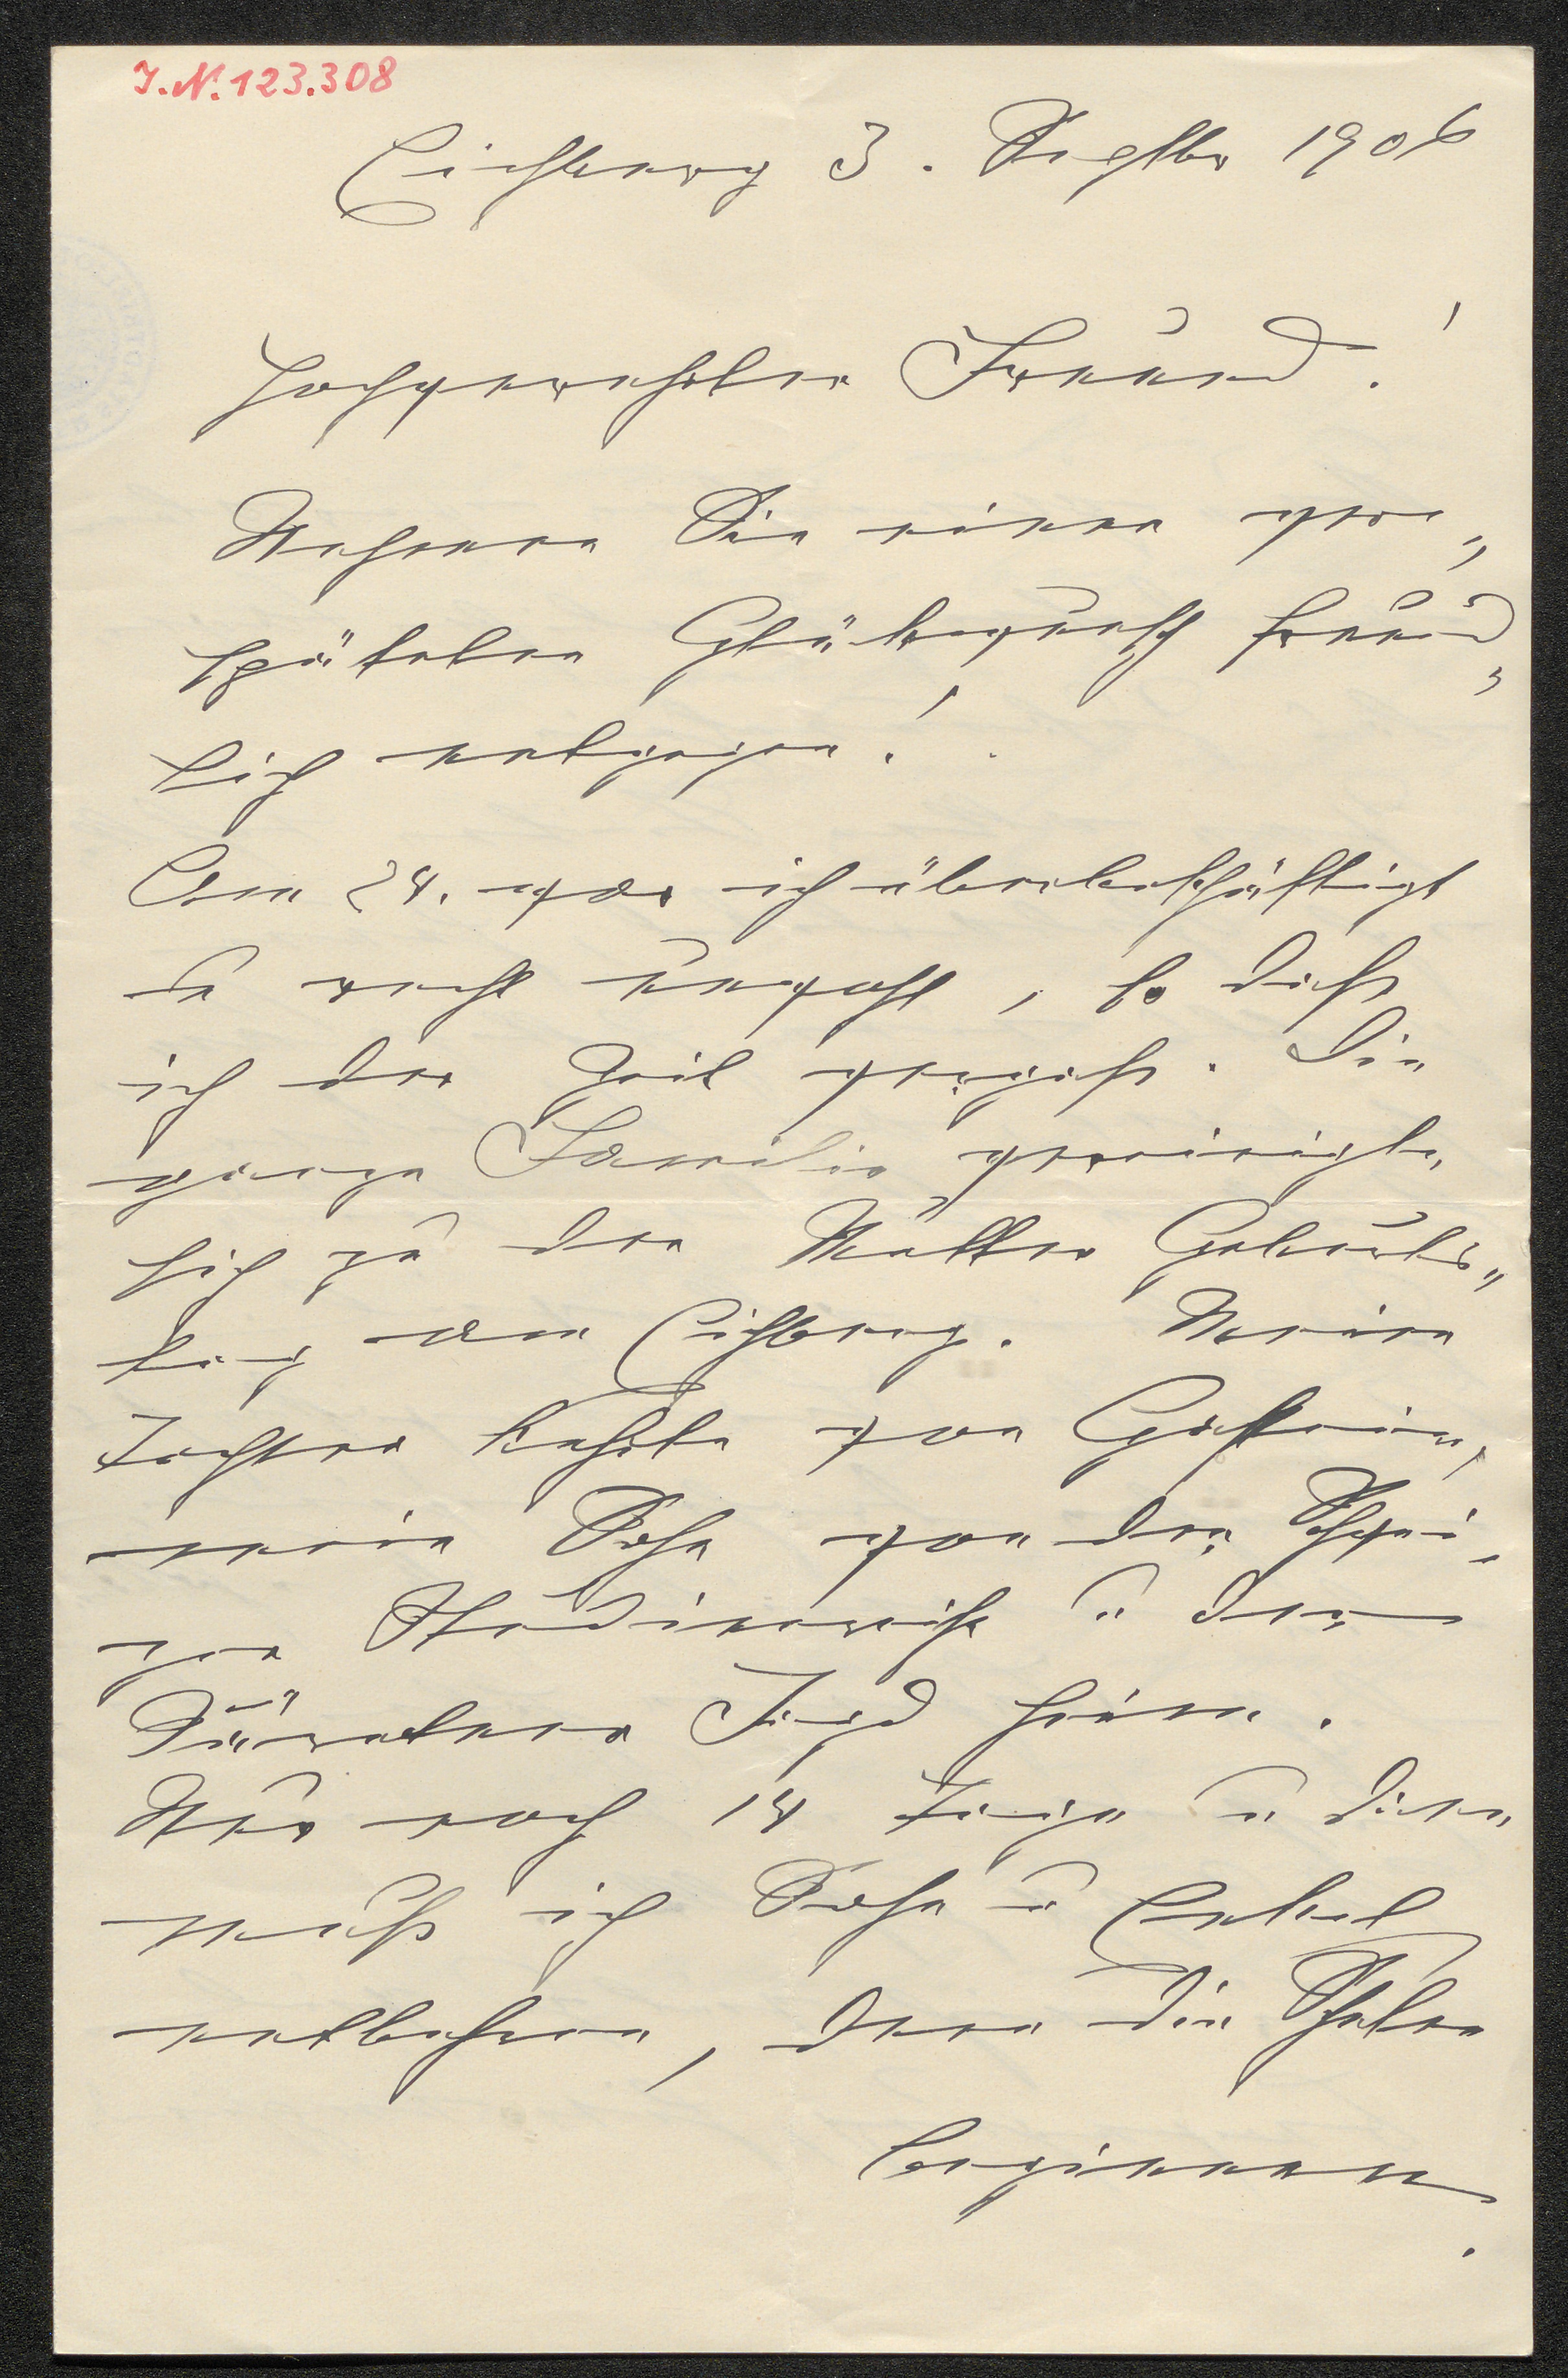 I.N. 123.308
Eichberg 3. Septbr 1906
Hochverehrter Freund!
Nehmen Sie einen ver„
späteten Glückwunsch freund„
lich entgegen!
Am 24. war ich überbeschäftigt
u recht unwohl, so daß
ich der Zeit vergaß. Die
ganze Familie vereinigte
sich zu der Mutter Geburts„
tag am Eichberg. Meine
Tochter kehrte von Gastein,
mein Sohn von der
Studienreise u der
Jagd heim.
Nur noch 14 Tage u dann
muß ich Sohn u Enkel
entbehren, denn die Schulen
beginnen.